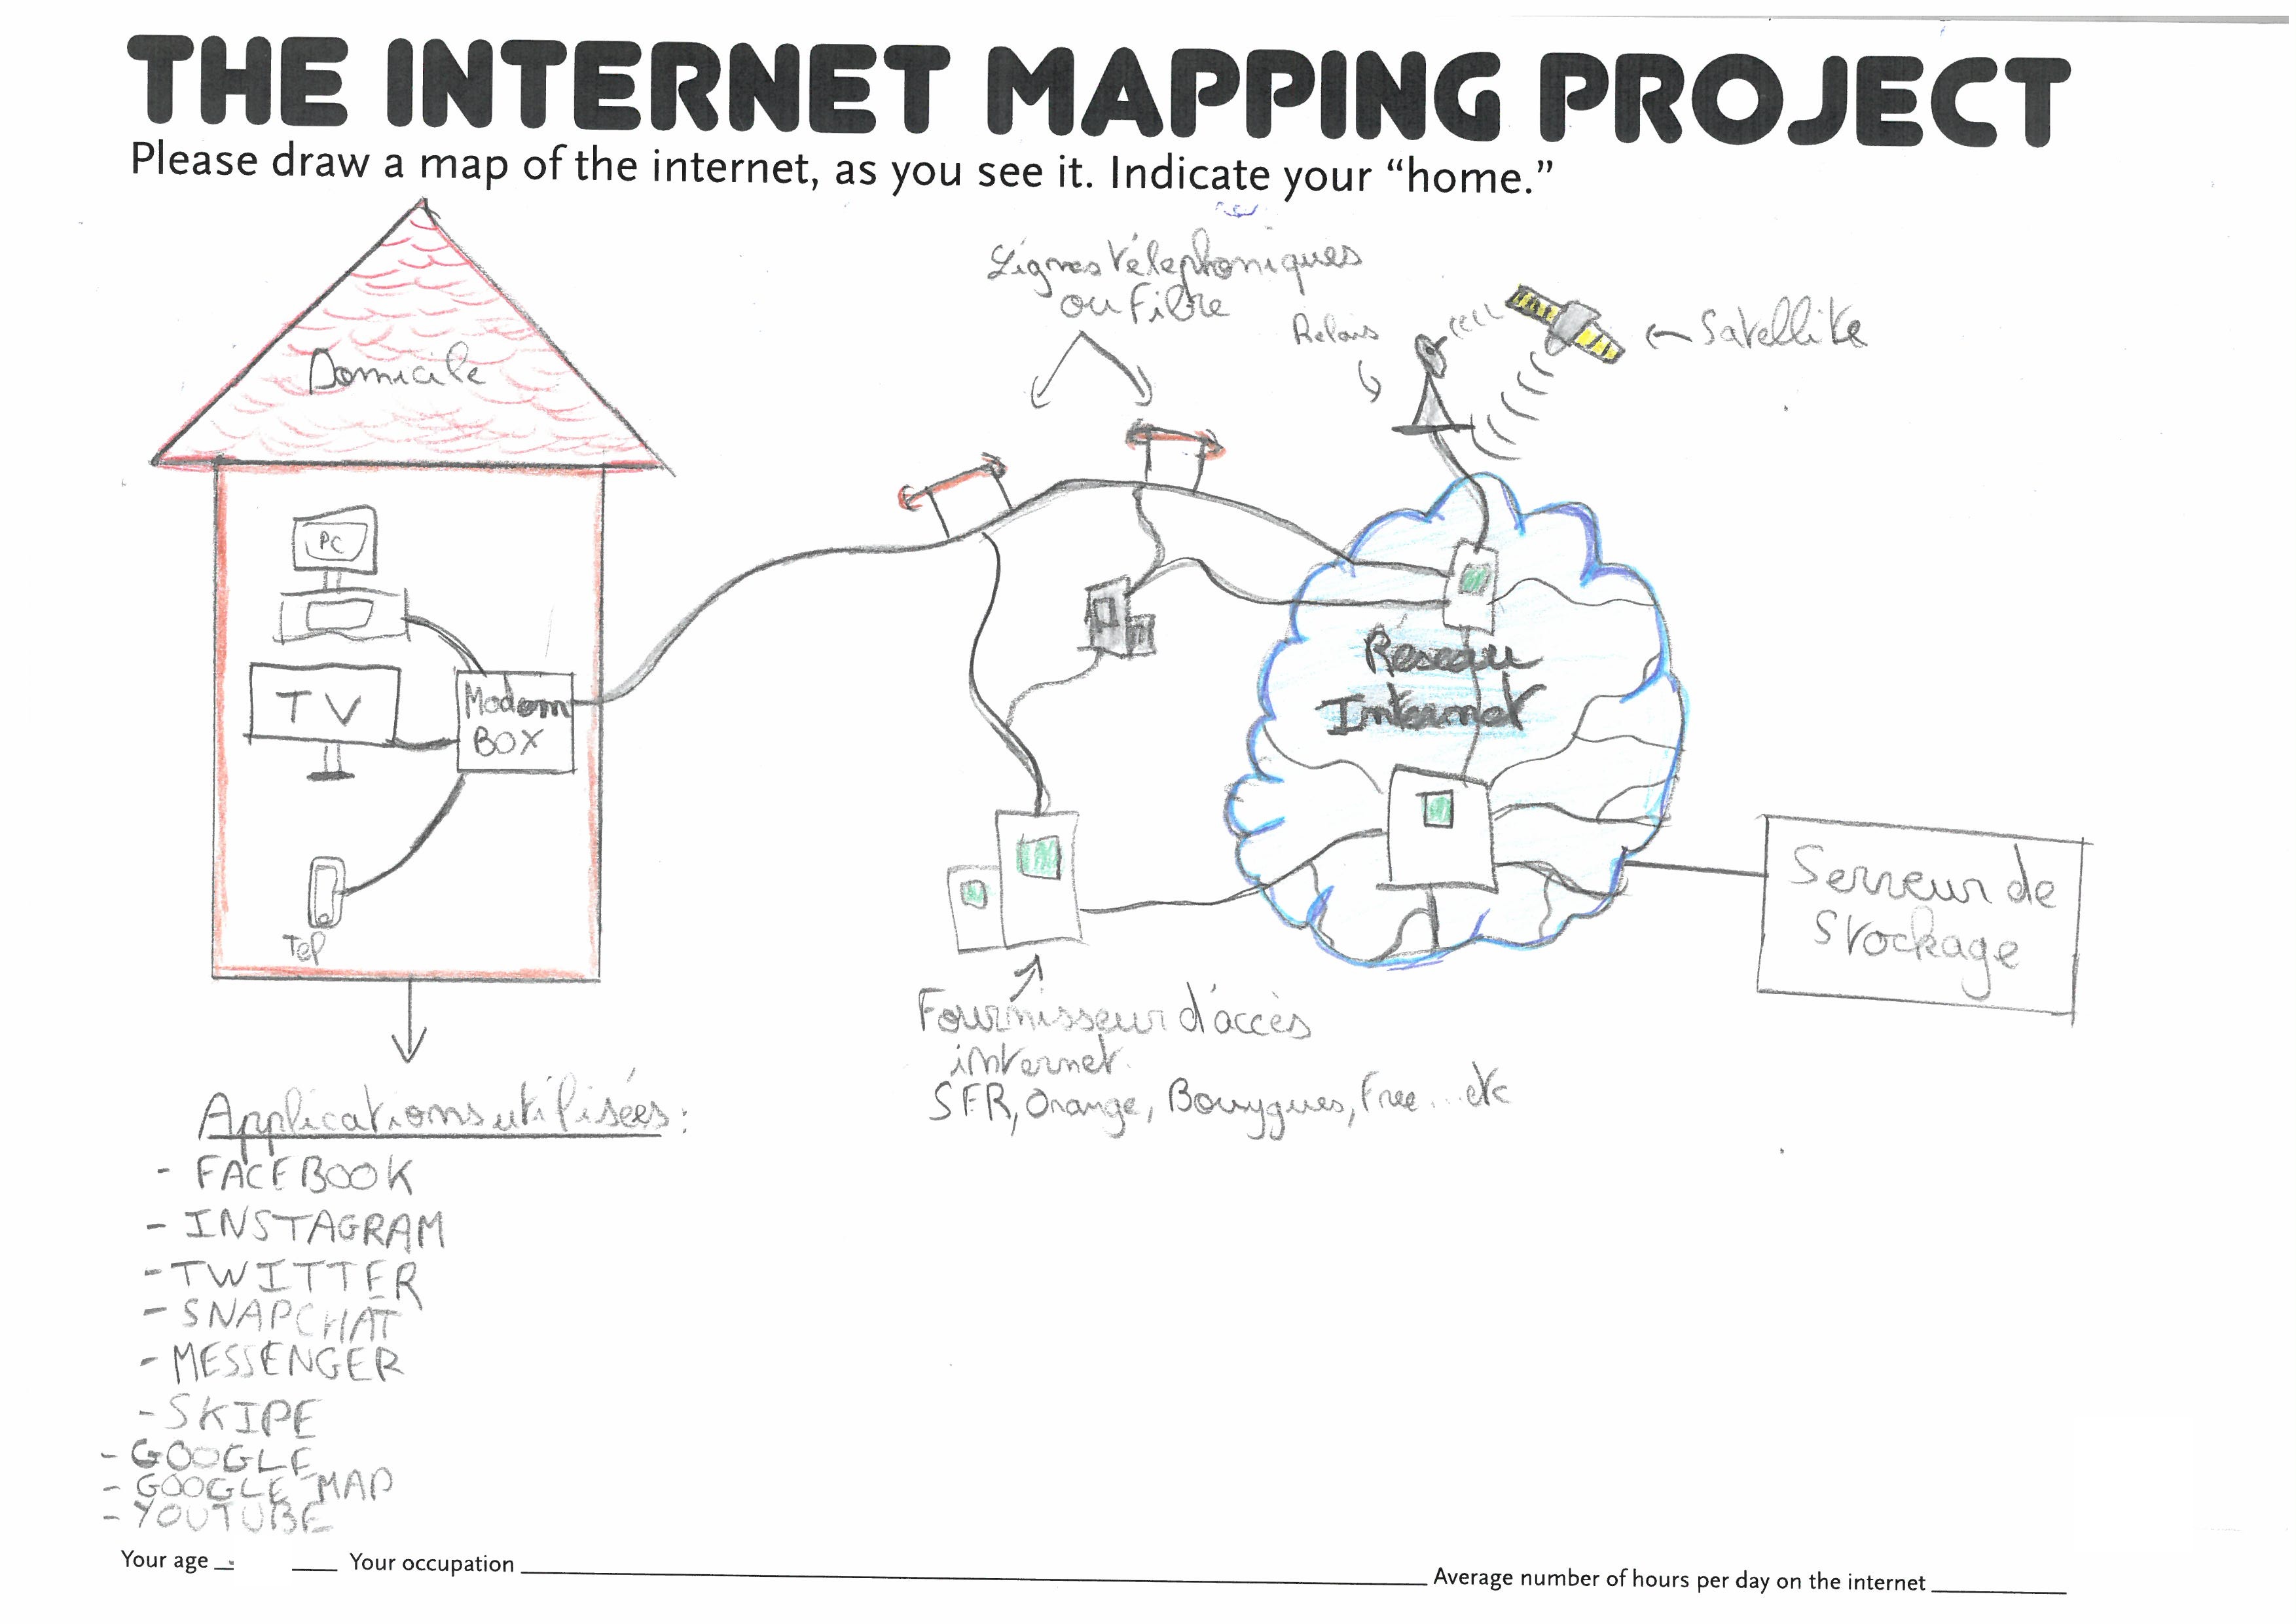 THE INTERNET MAPPING PROJECT
Please draw a map of the internet, as you see it. Indicate your “home.”
Lignes télephoniques
ou Fibre
Relais
Satellite
Domicile
PC
TV
Modem
BOX
Tel
Réseau
Internet
Serveur de
Stockage
Fournisseur d'accès
internet
SFR, Orange, Bouygues, Free...etc
Applications utilisées:
- FACEBOOK
- INSTAGRAM
- TWITTER
- SNAPCHAT
- MESSENGER
- SKIPE
- GOOGLE
- GOOGLE MAP
- YOUTUBE
Your age Your occupation Average number of hours per day on the internet